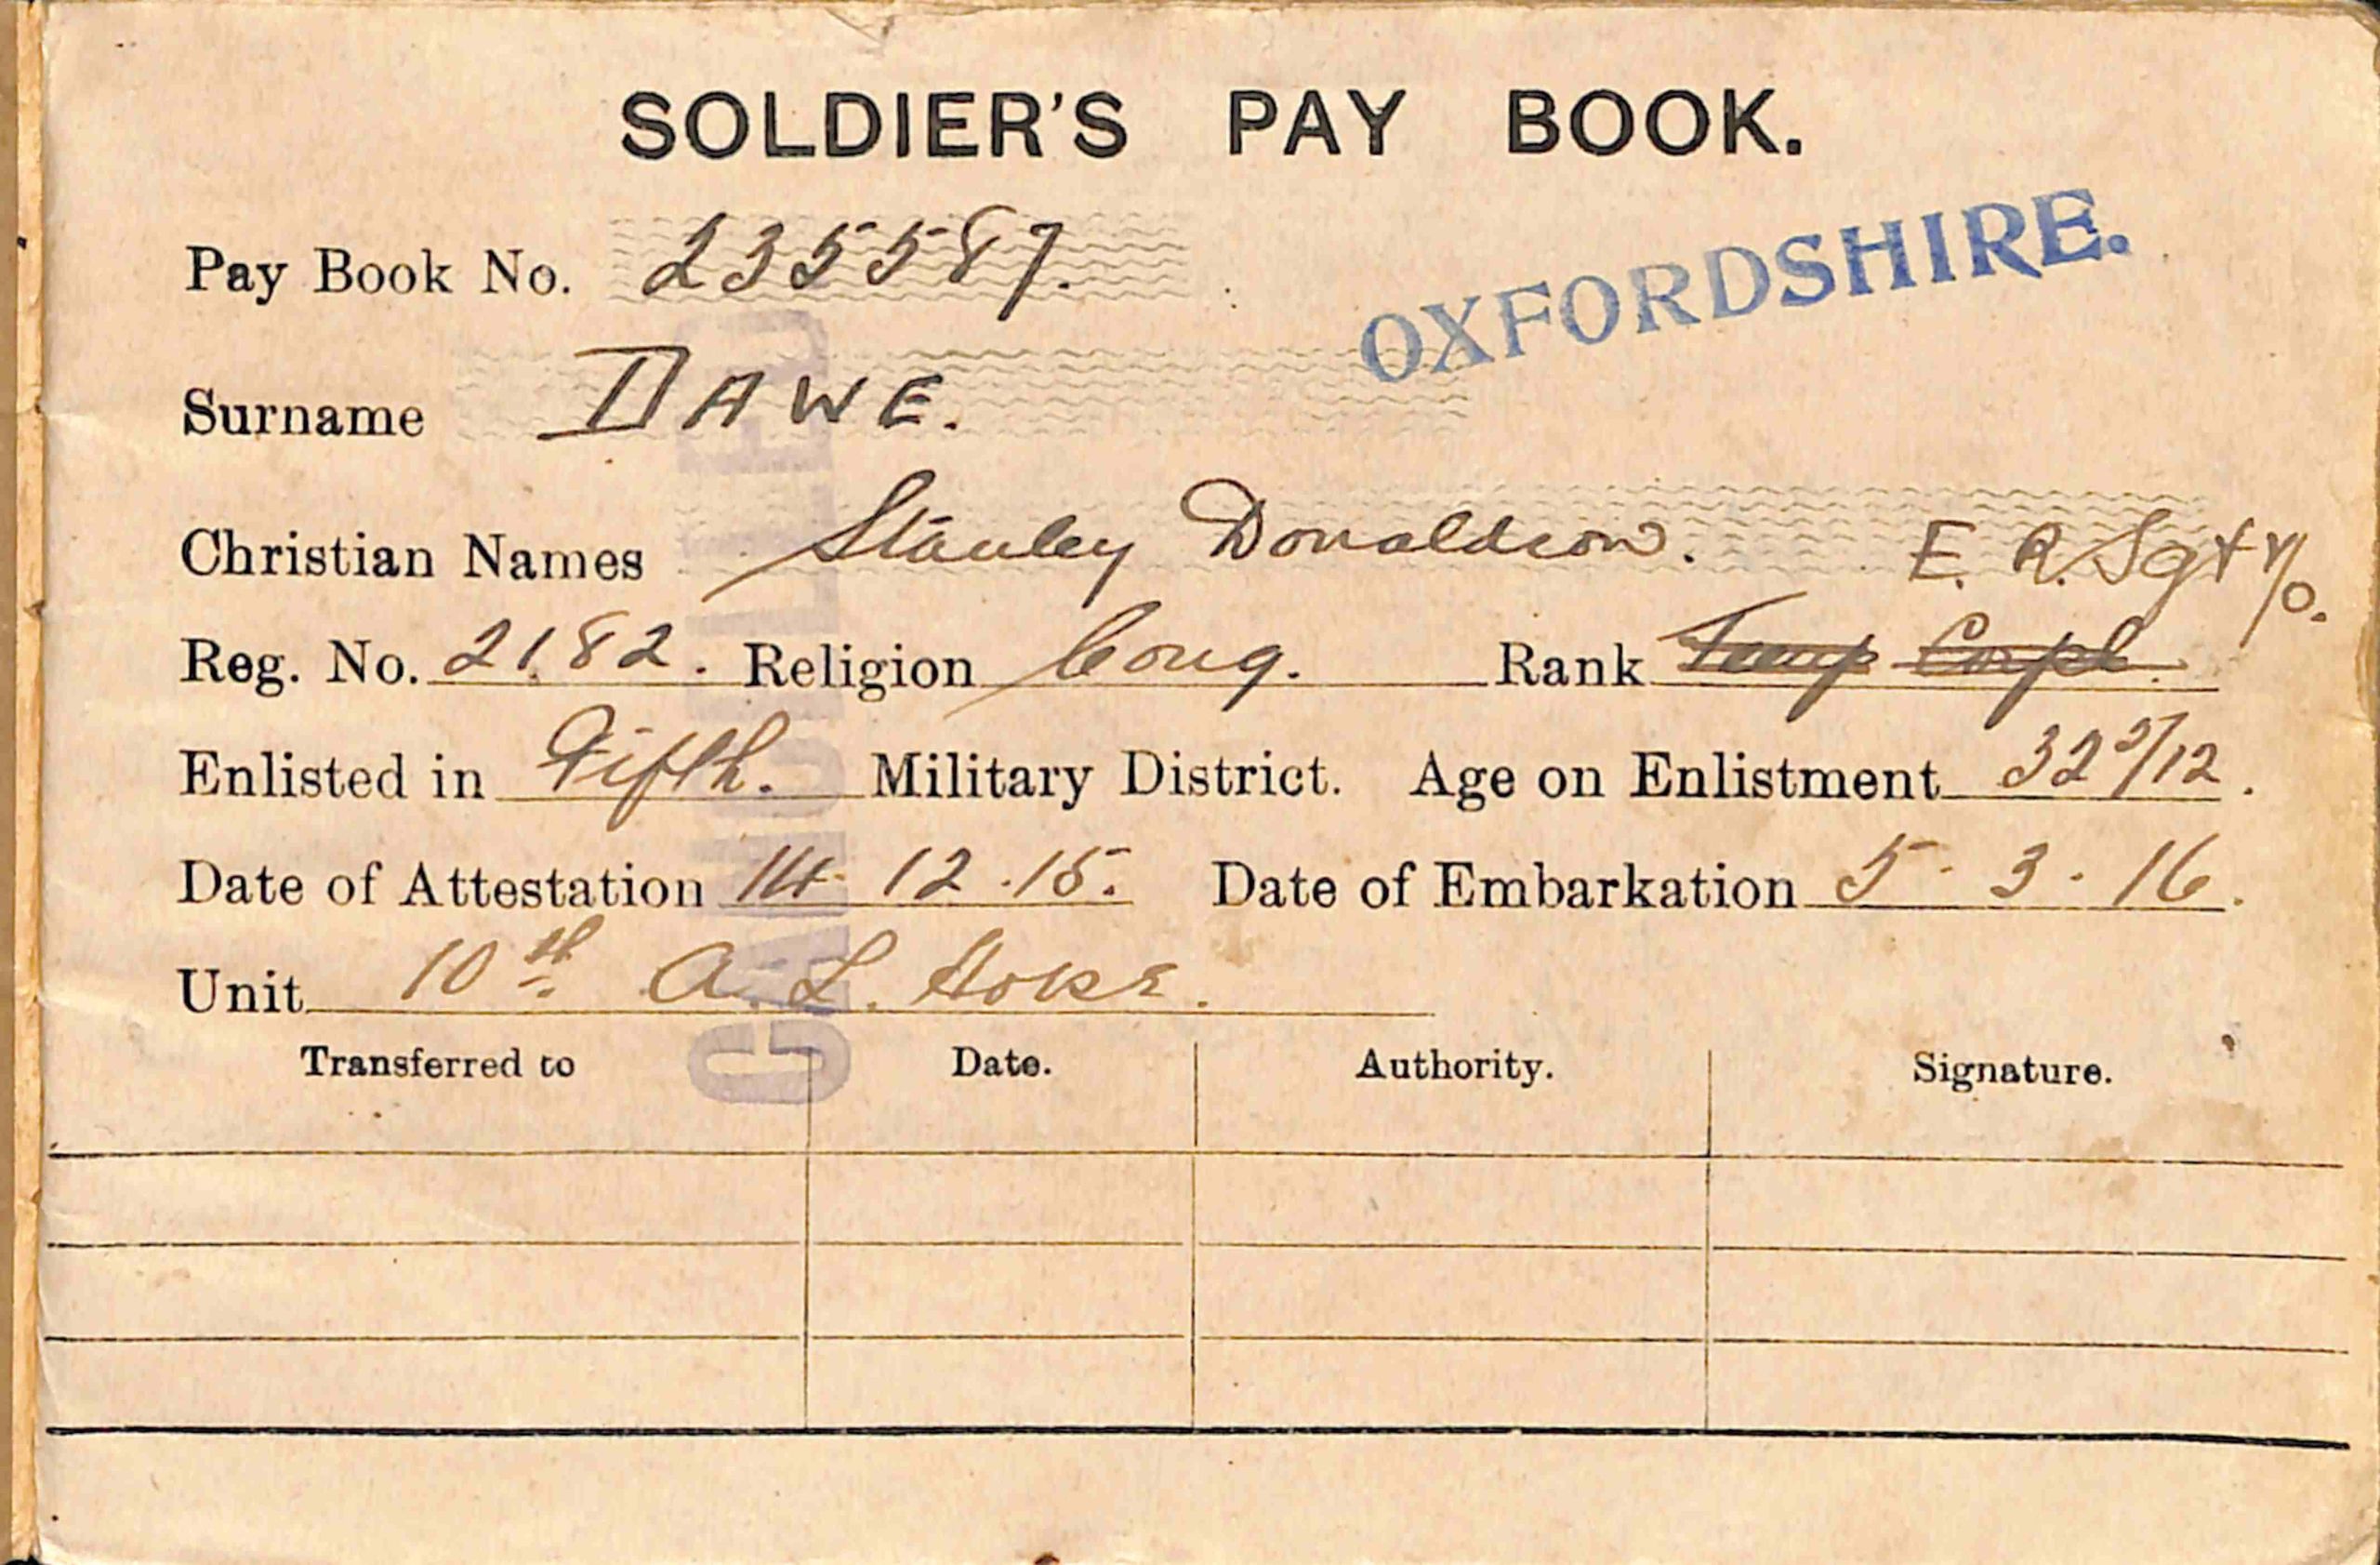 SOLDIER'S PAY BOOK.
Pay Book No. 235587.
OXFORDSHIRE.
Surname DAWE.
Christian Names Stanley Donaldson.
E. R. Sgt
Reg. No. 2182. Religion Cong. Rank Temp Corpl.
Enlisted in Fifth. Military District. Age on Enlistment 32 5/12.
Date of Attestation 14. 12. 15. Date of Embarkation 5. 3. 16.
Unit 10th A. L. Horse.
CANCELLED
Transferred to Date. Authority. Signature.